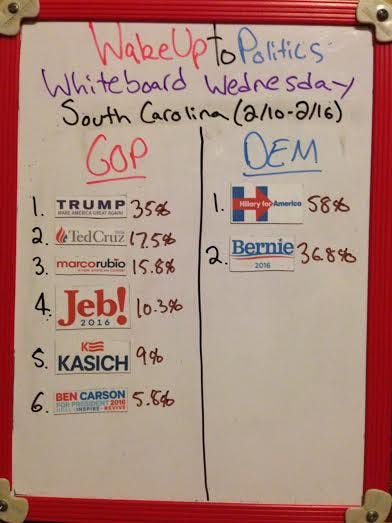 WakeUp to Politics
Whiteboard Wednesday
South Carolina (2/10-2/16)
GOP
1. TRUMP 35%
MAKE AMERICA GREAT AGAIN!
2. TedCruz 17.5%
3. marcorubio 15.8%
4. Jeb! 10.3%
2016
5. K KASICH 9%
6. BEN CARSON 5.8%
FOR PRESIDENT 2016
INSPIRE • REVIVE
DEM
1. H Hillary for America 58%
2. Bernie 36.8%
2016